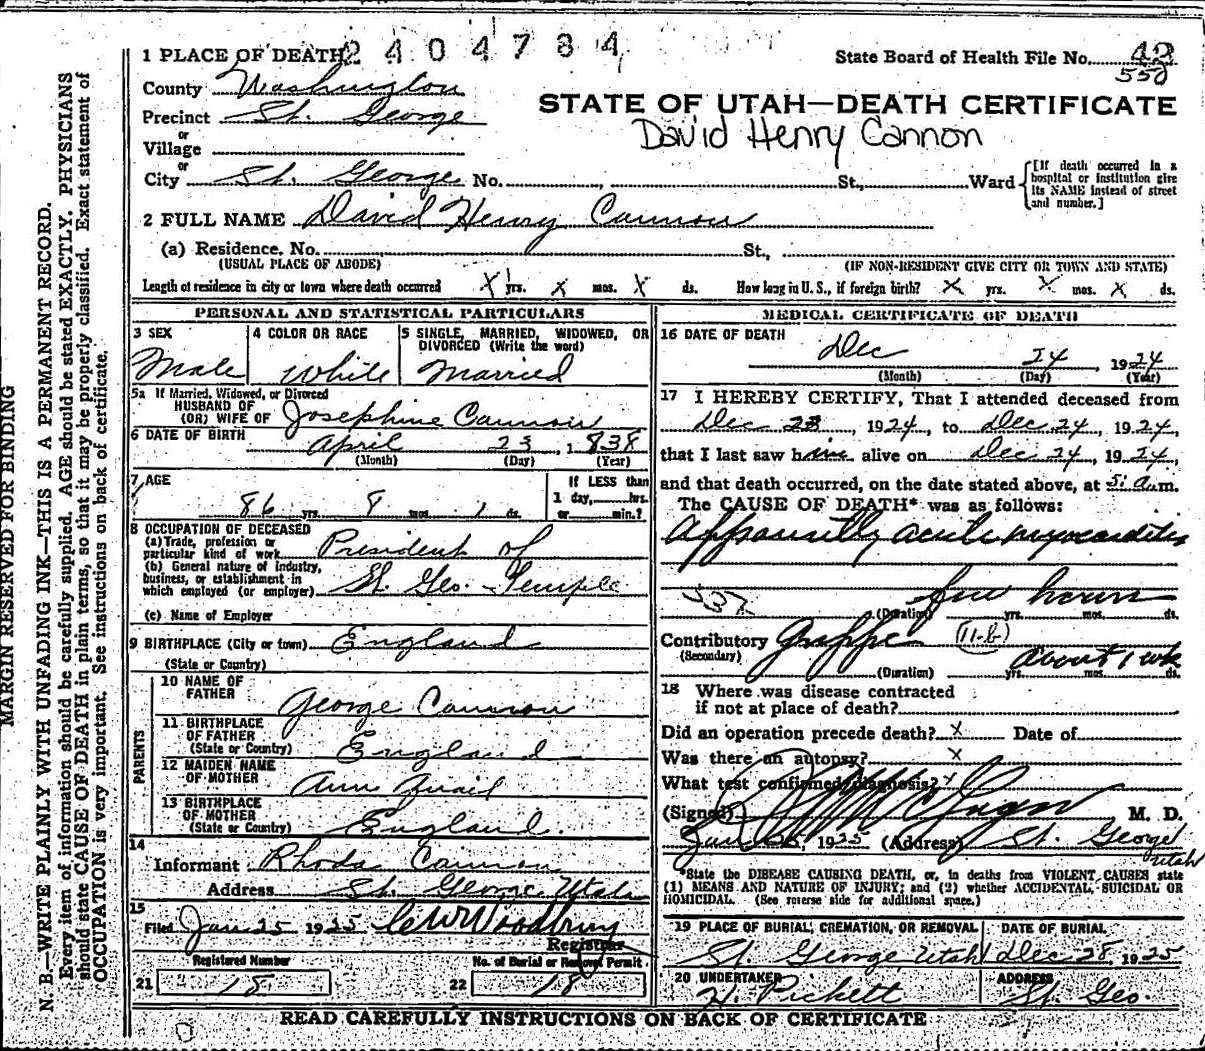 1 PLACE OF DEATH 2404784
State Board of Health File No. 42
550
County Washington
STATE OF UTAH—DEATH CERTIFICATE
Precinct St. George
David Henry Cannon
or
Village
or
City St. George No. , St., Ward
[If death occurred in a hospital or institution give its NAME instead of street and number.]
2 FULL NAME David Henry Cannon
(a) Residence. No. St.,
(USUAL PLACE OF ABODE) (IF NON-RESIDENT GIVE CITY OR TOWN AND STATE)
Length of residence in city or town where death occurred X yrs. X mos. X ds. How long in U. S., if foreign birth? X yrs. X mos. X ds.
PERSONAL AND STATISTICAL PARTICULARS
3 SEX
Male
4 COLOR OR RACE
White
5 SINGLE, MARRIED, WIDOWED, OR
DIVORCED (Write the word)
Married
5a If Married, Widowed, or Divorced
HUSBAND OF
(OR) WIFE OF Josephine Cannon
6 DATE OF BIRTH April 23, 1838
(Month) (Day) (Year)
7 AGE
86 yrs. 8 mos. 1 ds.
If LESS than
1 day, hrs.
or min.?
8 OCCUPATION OF DECEASED
(a) Trade, profession or
particular kind of work President of
(b) General nature of industry,
business, or establishment in
which employed (or employer) St. Geo. Temple
(c) Name of Employer
9 BIRTHPLACE (City or town) England
(State or Country)
PARENTS
10 NAME OF
FATHER George Cannon
11 BIRTHPLACE
OF FATHER
(State or Country) England
12 MAIDEN NAME
OF MOTHER Ann Quail
13 BIRTHPLACE
OF MOTHER
(State or Country) England.
14
Informant Rhoda Cannon
Address St. George, Utah
15
Filed Jan 25 1925 Woodbury
Registrar
Registered Number
21 18
No. of Burial or Removal Permit
22 18
MEDICAL CERTIFICATE OF DEATH
16 DATE OF DEATH
Dec 24, 1924
(Month) (Day) (Year)
17 I HEREBY CERTIFY, That I attended deceased from
Dec 23, 1924, to Dec 24, 1924,
that I last saw him alive on Dec 24, 1924,
and that death occurred, on the date stated above, at 5: a.m.
The CAUSE OF DEATH* was as follows:
Apparently acute myocarditis
few hours
(Duration) yrs. mos. ds.
Contributory Grippe (11-B)
(Secondary) about 1 wk
(Duration) yrs. mos. ds.
18 Where was disease contracted
if not at place of death?
Did an operation precede death? X Date of
Was there an autopsy? X
What test confirmed diagnosis? X
(Signed) M. D.
Jan 25, 1925 (Address) St. George
Utah
*State the DISEASE CAUSING DEATH, or, in deaths from VIOLENT CAUSES state
(1) MEANS AND NATURE OF INJURY; and (2) whether ACCIDENTAL, SUICIDAL OR
HOMICIDAL. (See reverse side for additional space.)
19 PLACE OF BURIAL, CREMATION, OR REMOVAL
St. George, Utah
DATE OF BURIAL
Dec 28, 1925
20 UNDERTAKER
H. Pickett
ADDRESS
St. Geo.
READ CAREFULLY INSTRUCTIONS ON BACK OF CERTIFICATE
MARGIN RESERVED FOR BINDING
N. B.—WRITE PLAINLY WITH UNFADING INK—THIS IS A PERMANENT RECORD.
Every item of information should be carefully supplied. AGE should be stated EXACTLY. PHYSICIANS
should state CAUSE OF DEATH in plain terms, so that it may be properly classified. Exact statement of
OCCUPATION is very important. See instructions on back of certificate.